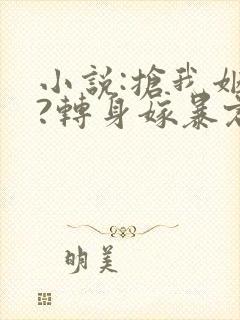 小說:搶我姻
?轉身嫁暴君
明美